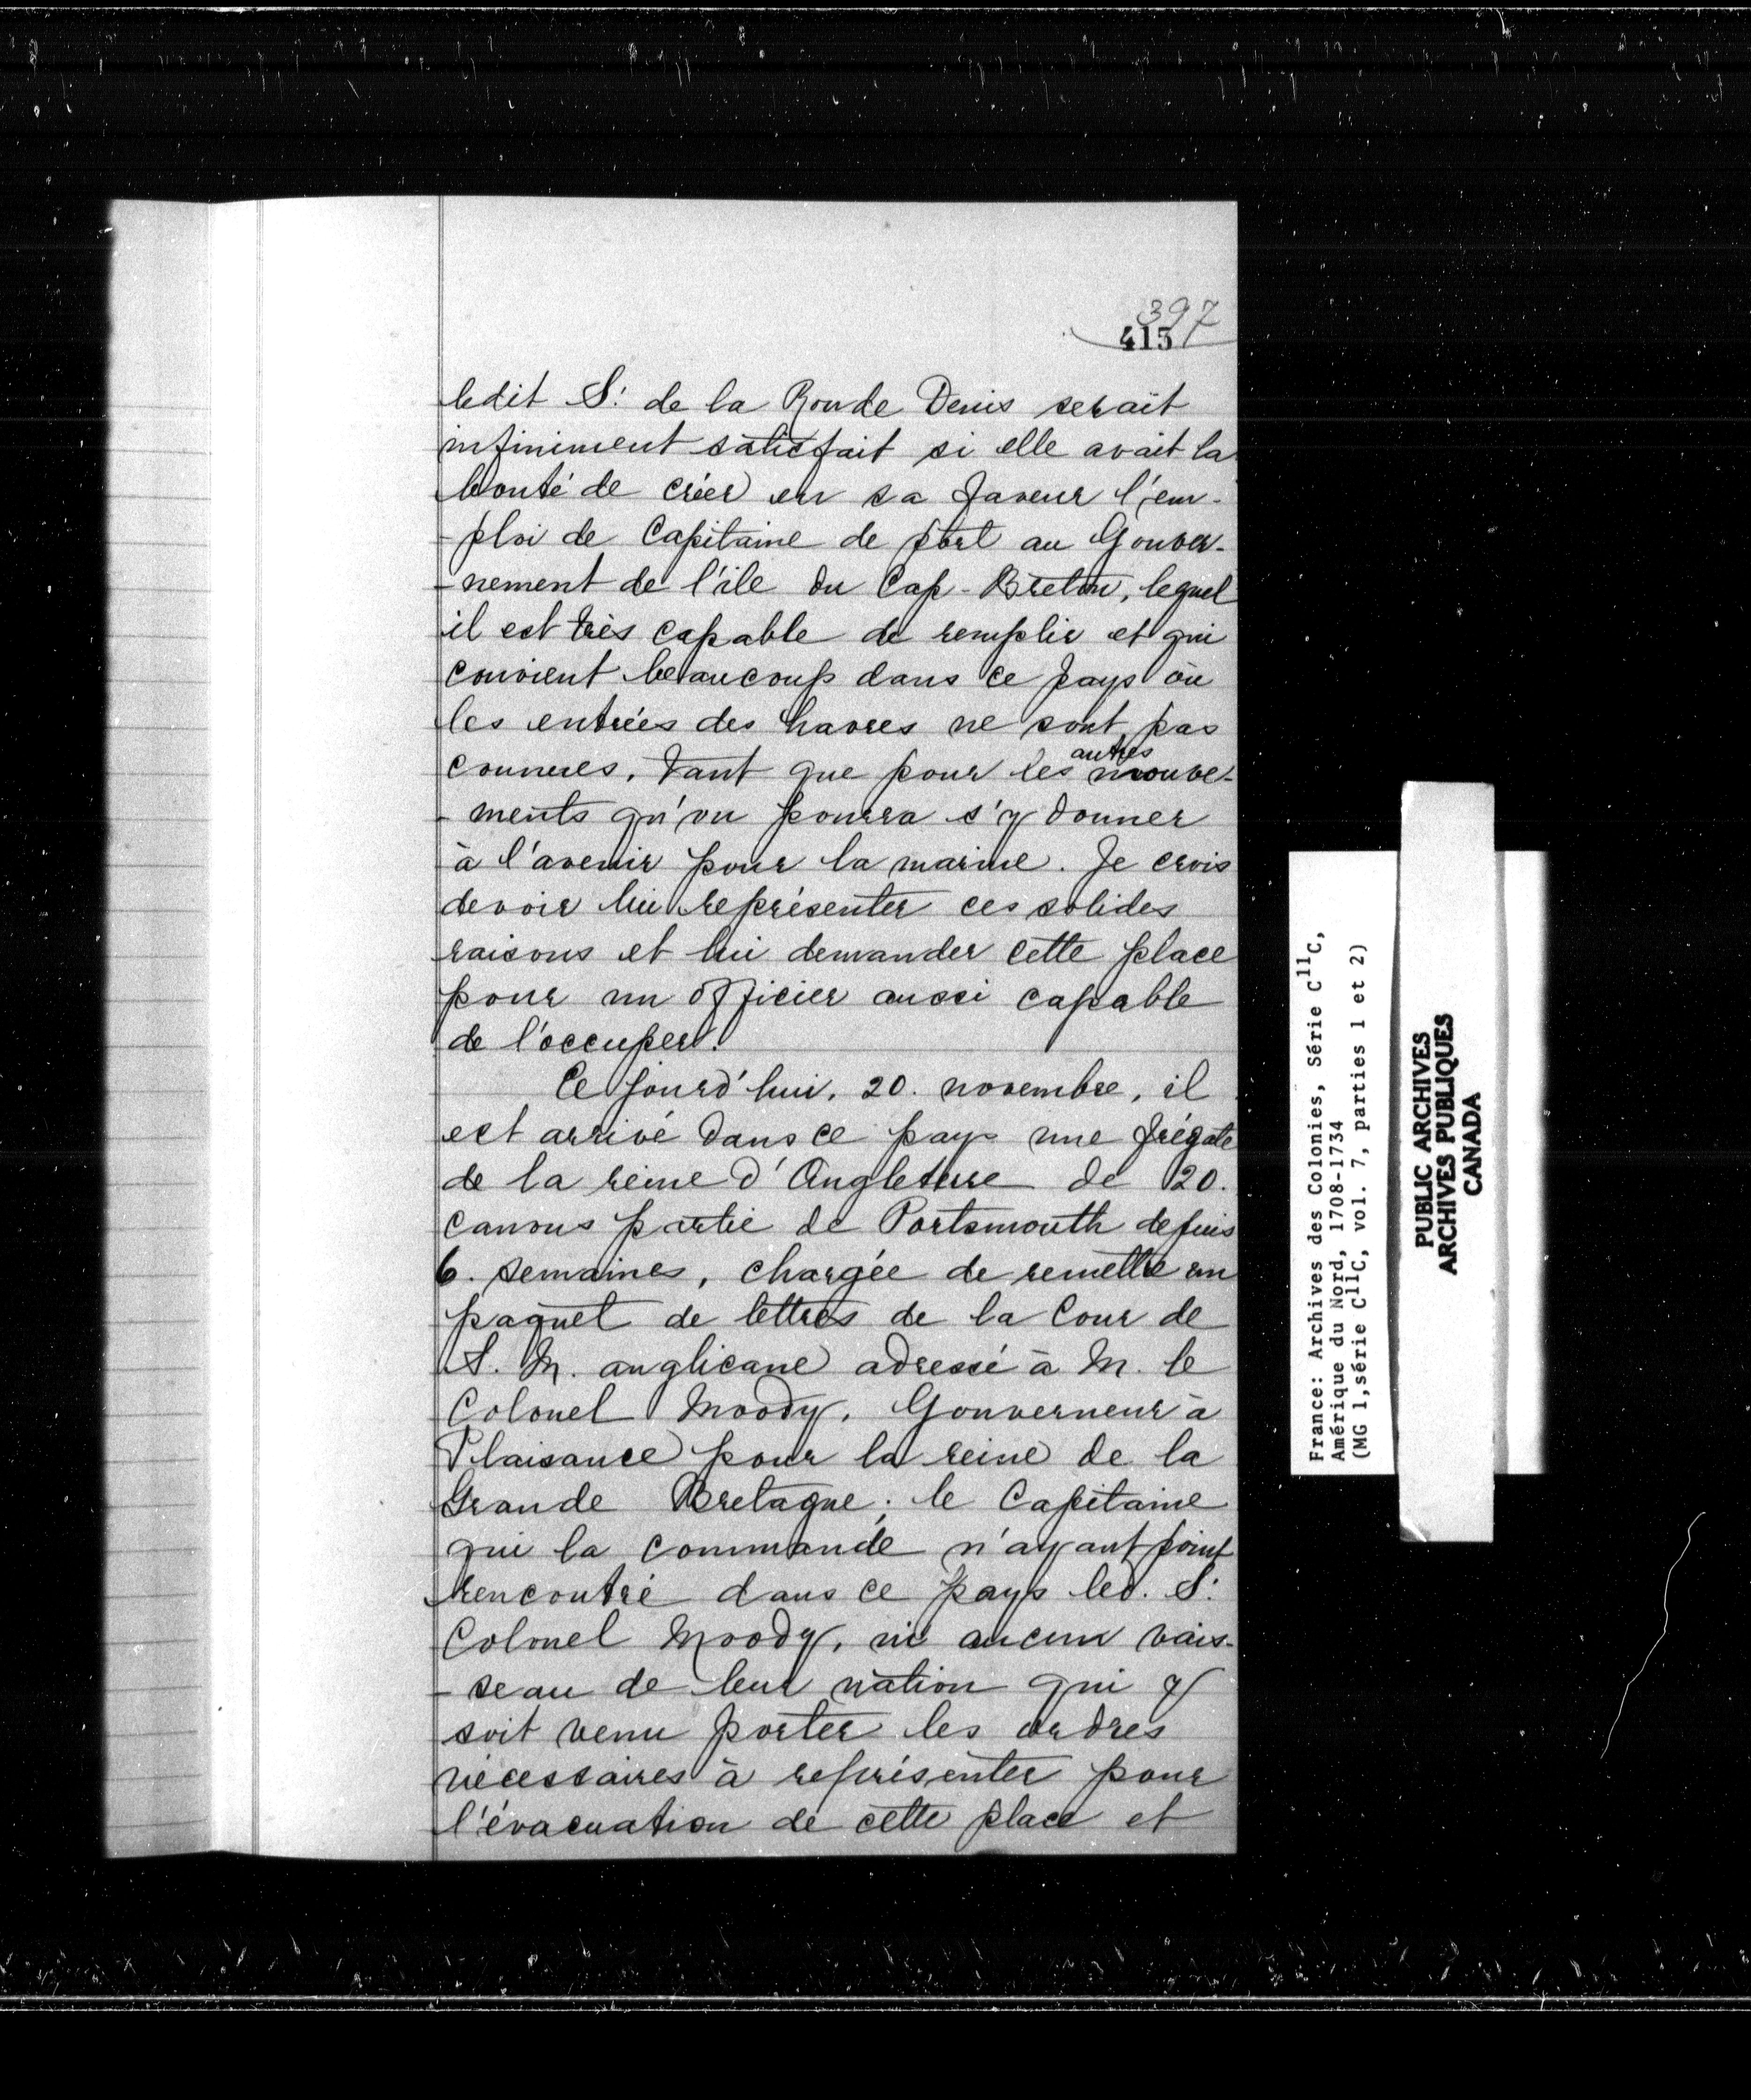 397
415
ledit S.r de la Ronde Denis serait
infiniment satisfait si elle avait la
bonté de créer en sa faveur l'em-
-ploi de Capitaine de port au Gouver-
-nement de l'ile du Cap-Breton, lequel
il est très capable de remplir et qui
convient beaucoup dans ce pays où
les entrées des havres ne sont pas
connues, tant que pour les autres mouve-
-ments qu'on pourra s'y donner
à l'avenir pour la marine. Je crois
devoir lui représenter ces solides
raisons et lui demander cette place
pour un officier aussi capable
de l'occuper.
Ce jourd'hui, 20. novembre, il
est arrivé dans ce pays une frégate
de la reine d'Angleterre de 20.
canons partie de Portsmouth depuis
6. semaines, chargée de remettre un
paquet de lettres de la Cour de
S. M. anglicane adressé à M. le
Colonel Moody, Gouverneur à
Plaisance pour la reine de la
Grande Bretagne; le Capitaine
qui la commande n'ayant point
rencontré dans ce pays led. S.r
Colonel Moody, ni aucun vais-
-seau de leur nation qui y
soit venu porter les ordres
nécessaires à représenter pour
l'évacuation de cette place et
France: Archives des Colonies, Série C11C,
Amérique du Nord, 1708-1734
(MG 1,série C11C, vol. 7, parties 1 et 2)
PUBLIC ARCHIVES
ARCHIVES PUBLIQUES
CANADA